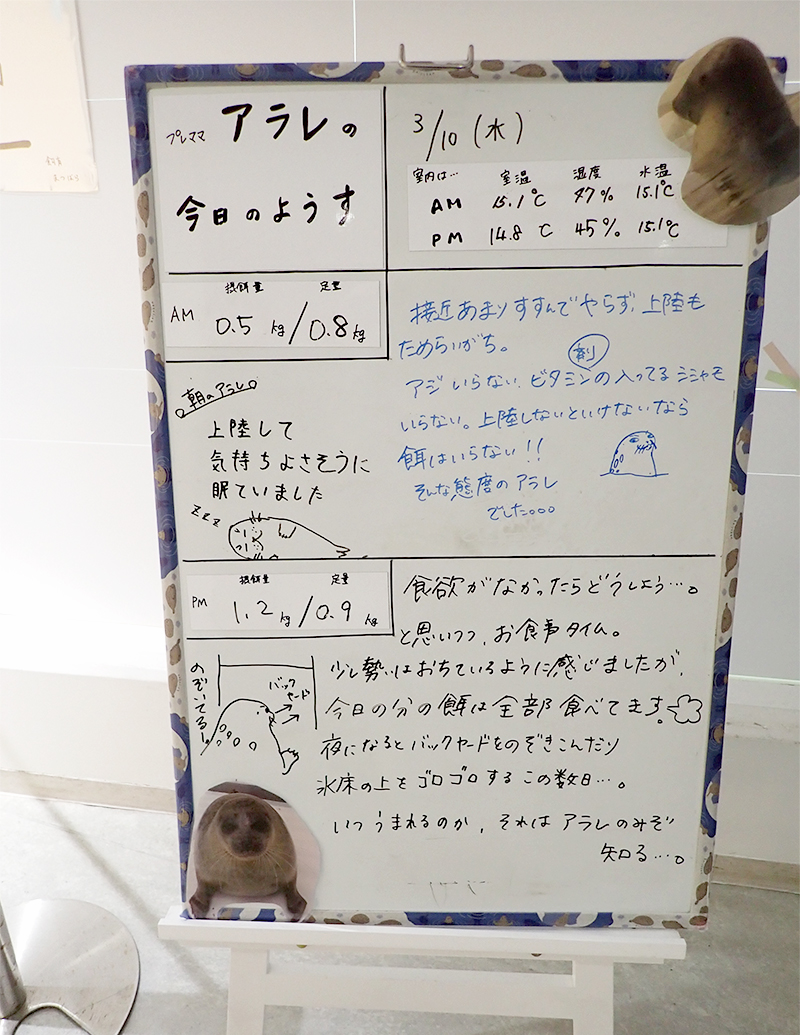 プレママ アラレの
今日のようす
3/10 (水)
室内は… 室温 湿度 水温
AM 15.1℃ 47% 15.1℃
PM 14.8℃ 45% 15.1℃
摂餌量 定量
AM 0.5kg/0.8kg
朝のアラレ
上陸して
気持ちよさそうに
眠ていました
zzz
接近あまりすすんでやらず、上陸も
ためらいがち。
アジいらない、ビタミン剤の入ってるシシャモ
いらない。上陸しないといけないなら
餌はいらない!!
そんな態度のアラレ
でした。。。
摂餌量 定量
PM 1.2kg/0.9kg
のぞいてる!
バック
ヤード
食欲がなかったらどうしよう…。
と思いつつ、お食事タイム。
少し勢いはおちているように感じましたが、
今日の分の餌は全部食べてます。
夜になるとバックヤードをのぞきこんだり
氷床の上をゴロゴロするこの数日…。
いつうまれるのか、それはアラレのみぞ
知る…。